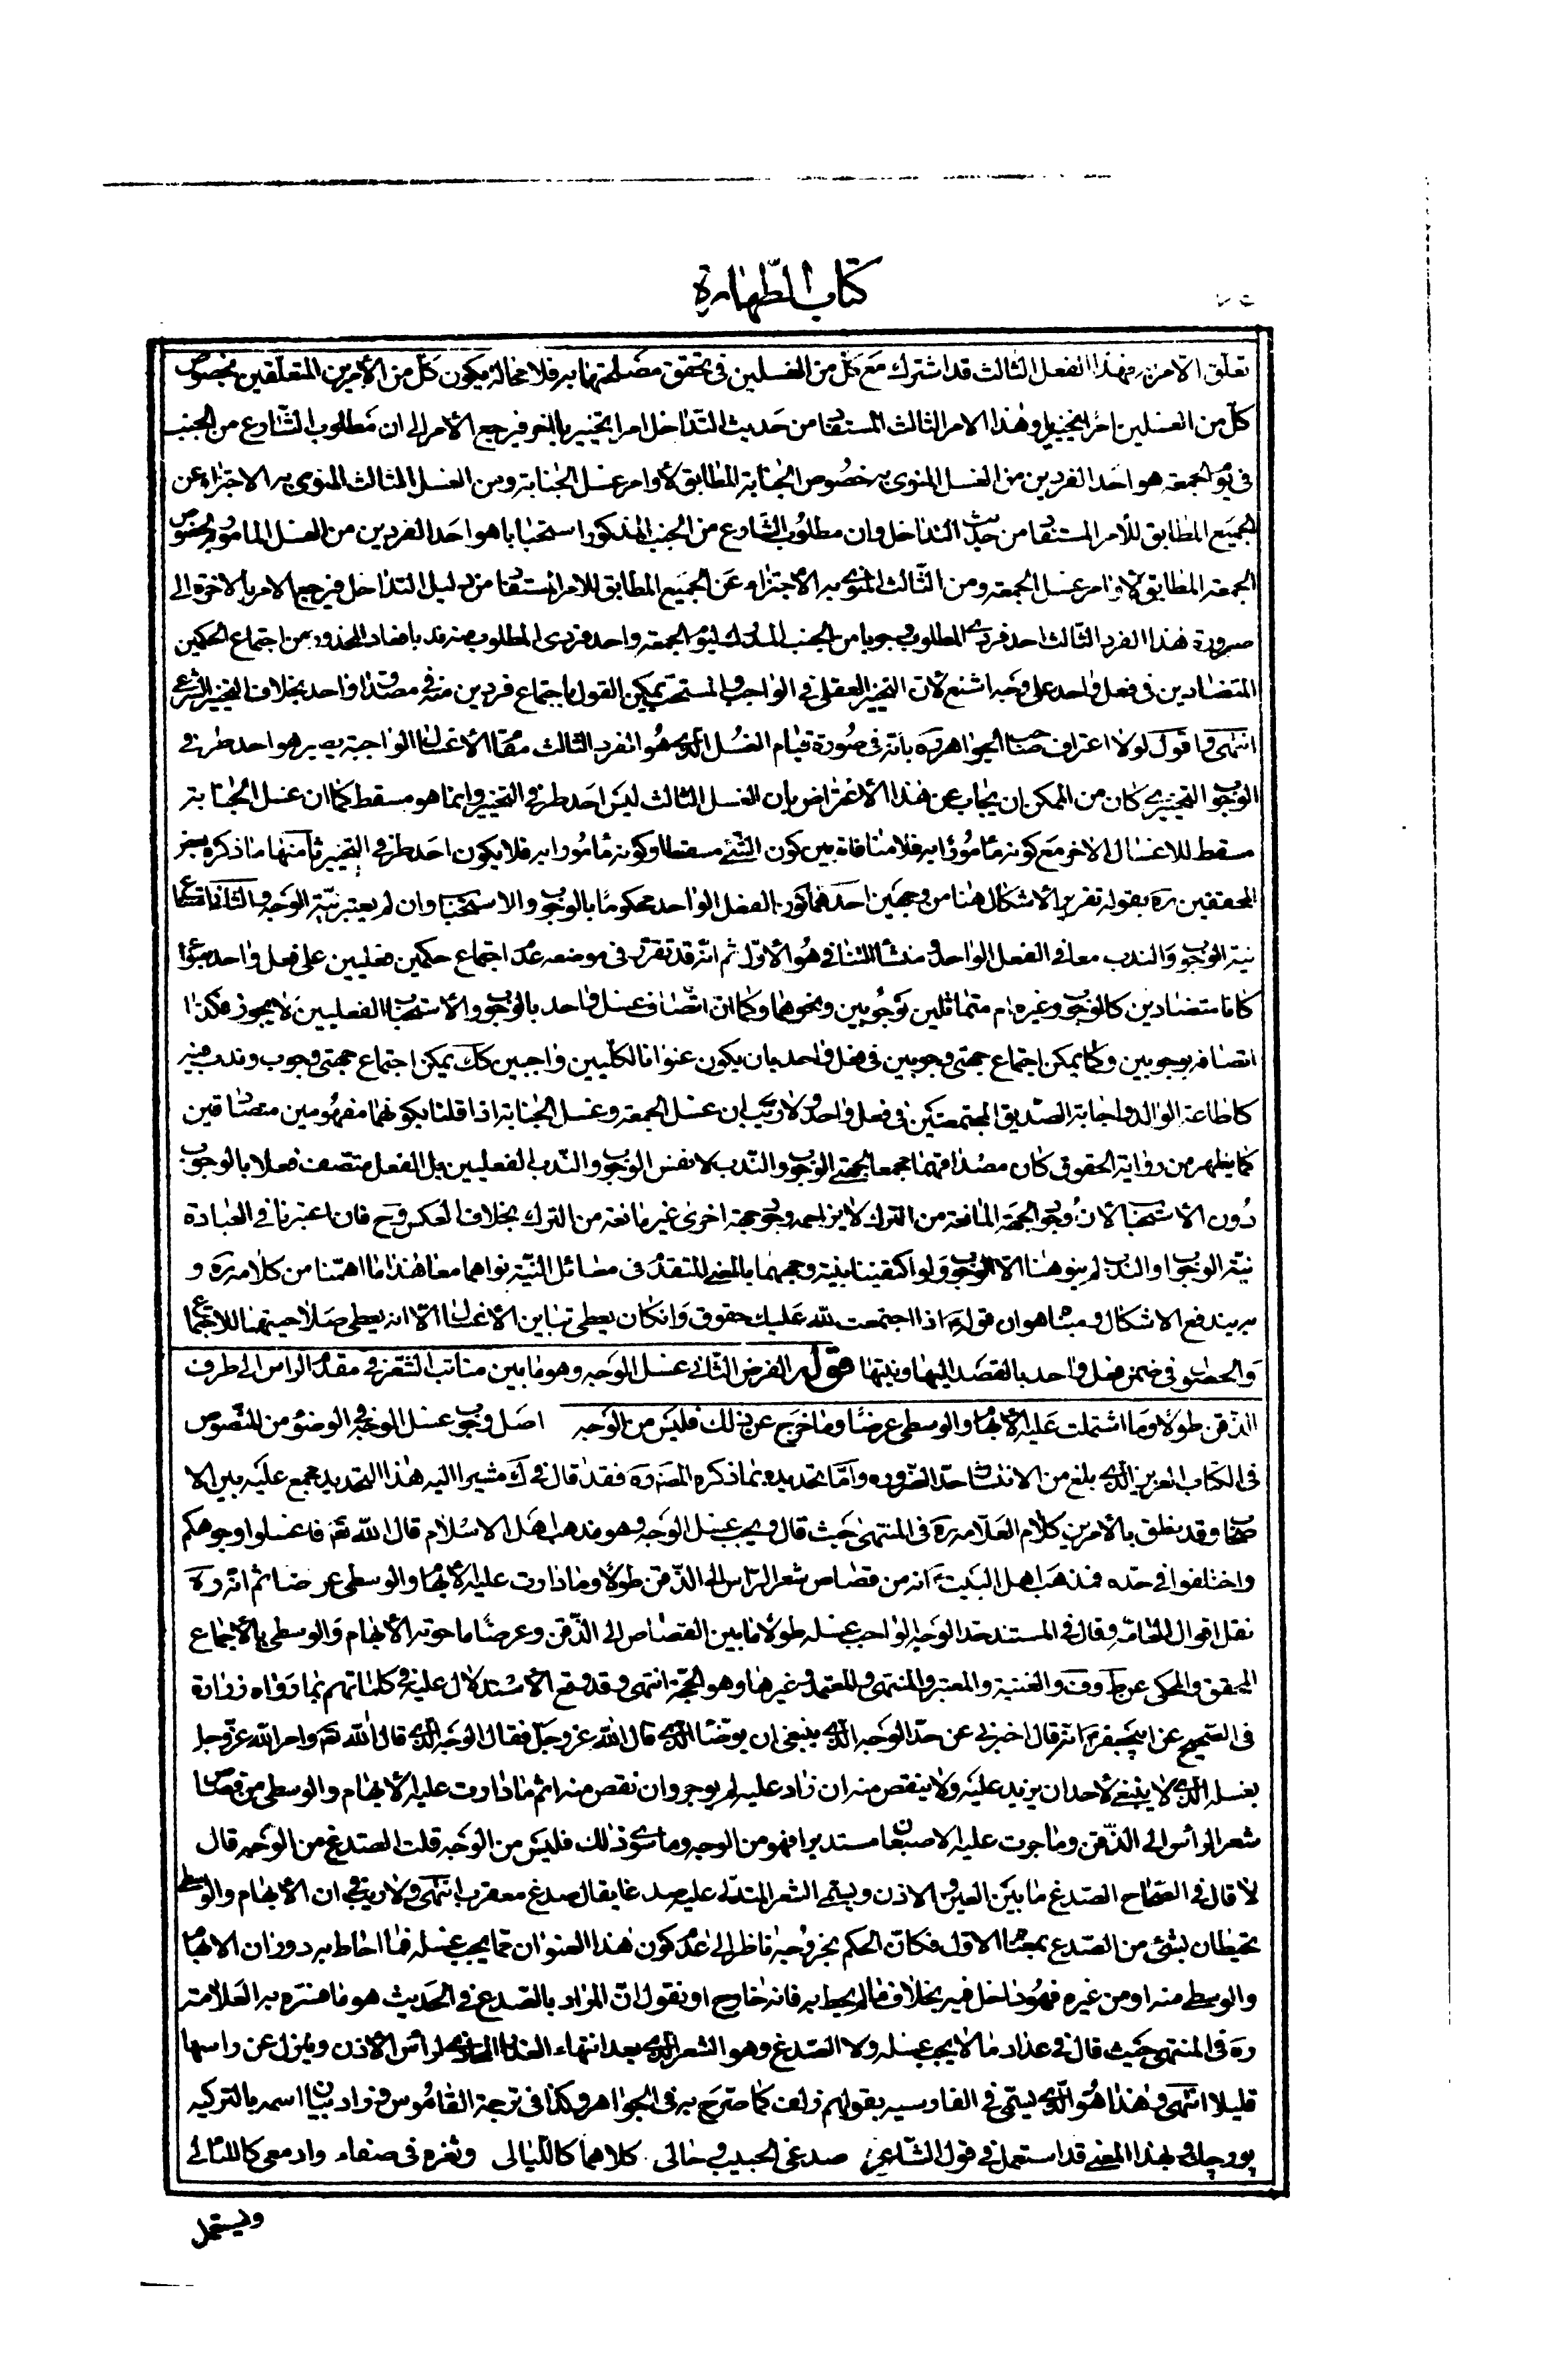 كتاب الطهارة
تعلق الامر به فهذا الفعل الثالث قد اشترك مع كل من الغسلين فى تحقق مصلحتهما به فلا محالة يكون كل من الأمرين المتعلقين بخصوص
كل من الغسلين امرا تخييريا وهذا الامر الثالث المستفاد من حديث التداخل امرا تخييريا اخر فيرجع الأمر الى ان مطلوب الشارع من الجنب
فى يوم الجمعة هو احد الفردين من الغسل المنوى به خصوص الجنابة المطابق لأوامر غسل الجنابة ومن الغسل الثالث المنوى به الاجتزاء عن
الجميع المطابق للأمر المستفاد من حديث التداخل وان مطلوب الشارع من الجنب المذكور استحبابا هو احد الفردين من الغسل المامور به لخصوص
الجمعة المطابق لأوامر غسل الجمعة ومن الثالث المنوى به الأجتزاء عن الجميع المطابق للامر المستفاد من دليل التداخل فيرجع الامر بالاخرة الى
صيرورة هذا الفرد الثالث احد فردى المطلوب وجوبا من الجنب المدرك ليوم الجمعة واحد فردى المطلوب منه ندبا فعاد المحذور من اجتماع الحكمين
المتضادين فى فعل واحد على وجه اشنع لأن التخيير العقلى فى الواجب والمستحب يمكن القول باجتماع فردين منه فى مصداق واحد بخلاف التخيير الشرعى
انتهى واقول لولا اعتراف صاحب الجواهر ره بانه فى صورة قيام الغسل الذى هو الفرد الثالث مقام الأغسال الواجبة يصير هو احد طرفى
الوجوب التخييرى كان من الممكن ان يجاب عن هذا الأعتراض بان الغسل الثالث ليس احد طرفى التخيير وانما هو مسقط كما ان غسل الجنابة
مسقط للاغسال الاخر مع كونه مأمورا به فلا منافاة بين كون الشئ مسقطا وكونه مأمورا به فلا يكون احد طرفى التخيير ثامنها ما ذكره بعض
المحققين ره بقوله تقرير الأشكال هنا من وجهين احدهما كون الفعل الواحد محكوما بالوجوب والاستحباب وان لم يعتبر نية الوجه والثانى اجتماع
نية الوجوب والندب معا فى الفعل الواحد ومنشأ الثانى هو الأول ثم انه قد تقرر فى موضعه عدم اجتماع حكمين فعليين على فعل واحد سواء
كانا متضادين كالوجوب وغيره ام متماثلين كوجوبين ونحوهما وكما ان اتصاف غسل واحد بالوجوب والأستحباب الفعليين لا يجوز فكذا
اتصافه بوجوبين وكما يمكن اجتماع جهتى وجوبين فى فعل واحد بان يكون عنوانا لكليين واجبين كك يمكن اجتماع جهتى وجوب وندب فيه
كاطاعة الوالد واجابة الصديق المجتمعتين فى فعل واحد ولا ريب ان غسل الجمعة وغسل الجنابة اذا قلنا بكونهما مفهومين متصادقين
كما يظهر من رواية الحقوق كان مصداقهما مجمعا لجهتى الوجوب والندب لا نفس الوجوب والندب الفعليين بل الفعل متصف فعلا بالوجوب
دون الأستحباب لأن وجود الجهة المانعة من الترك لا يزاحمه وجود جهة اخرى غير مانعة من الترك بخلاف العكس وح فان اعتبرنا فى العبادة
نية الوجوب او الندب لم ينو هنا الا الوجوب ولو اكتفينا بنية وجههما بالمعنى المتقدم فى مسائل النية نواهما معا هذا ما اهمنا من كلامه ره و
به يندفع الاشكال ومبناه هو ان قوله ع اذا اجتمعت لله عليك حقوق وان كان يعطى تباين الأغسال الا انه يعطى صلاحيتها للاجتماع
والحصول فى ضمن فعل واحد بالقصد اليها ونيتها قوله الفرض الثانى غسل الوجه وهو ما بين منابت الشعر فى مقدم الراس الى طرف
الذقن طولا وما اشتملت عليه الأبهام والوسطى عرضا وما خرج عن ذلك فليس من الوجه اصل وجوب غسل الوجه فى الوضوء من المنصوص
فى الكتاب العزيز الذى بلغ من الانتساب حد الضرورة واما تحديده بما ذكره المصنف ره فقد قال فى ك مشيرا اليه هذا التحديد مجمع عليه بين الا
صحاب وقد نطق بالأمرين كلام العلامة ره فى المنتهى حيث قال ويجب غسل الوجه وهو مذهب اهل الاسلام قال الله تعم فاغسلوا وجوهكم
واختلفوا فى حده فمذهب اهل البيت ع انه من قصاص شعر الراس الى الذقن طولا وما دارت عليه الأبهام والوسطى عرضا ثم انه ره
نقل اقوال العامة وقال فى المستند حد الوجه الواجب غسله طولا ما بين القصاص الى الذقن وعرضا ما حوته الأبهام والوسطى بالأجماع
المحقق والمحكى عن ط وف والغنية والمعتبر والمنتهى والمعتمد وغيرها وهو الحجة انتهى وقد وقع الأستدلال عليه فى كلماتهم بما رواه زرارة
فى الصحيح عن ابيجعفر ع انه قال اخبرنى عن حد الوجه الذى ينبغى ان يوضأ الذى قال الله عز وجل فقال الوجه الذى قال الله تعم وامر الله عز وجل
بغسله الذى لا ينبغى لأحد ان يزيد عليه ولا ينقص منه ان زاد عليه لم يوجر وان نقص منه اثم ما دارت عليه الأبهام والوسطى من قصاص
شعر الرأس الى الذقن وما جرت عليه الاصبعان مستديرا فهو من الوجه وما سوى ذلك فليس من الوجه قلت الصدغ من الوجه قال
لا قال فى الصحاح الصدغ ما بين العين والاذن ويسمى الشعر المتدلى عليه صدغا يقال صدغ معقرب انتهى ولا ريب فى ان الأبهام والوسطى
تحيطان لشئ من الصدغ بمعناه الاول فكان الحكم بخروجه ناظر الى عدم كون هذا العنوان مما يجب غسله فما احاط به دوران الابهام
والوسطى منه او من غيره فهو داخل فيه بخلاف ما لم يحط به فانه خارج او نقول ان المراد بالصدغ فى الحديث هو ما فسره به العلامة
ره فى المنتهى حيث قال فى عداد ما لا يجب غسله ولا الصدغ وهو الشعر الذى بعد انتهاء العذار المحاذى لرأس الأذن وينزل عن راسها
قليلا انتهى وهذا هو الذى يسمى فى الفارسيه بقولهم زلف كما صرح به فى الجواهر وكذا فى ترجمة القاموس وزاد بيان اسمه بالتركيه
پورچك وبهذا المعنى قد استعمل فى قول الشاعر صدغى الحبيب وحالى كلاهما كالليالى وثغره فى صفاء وادمعى كاللئالئ
ويستعمل